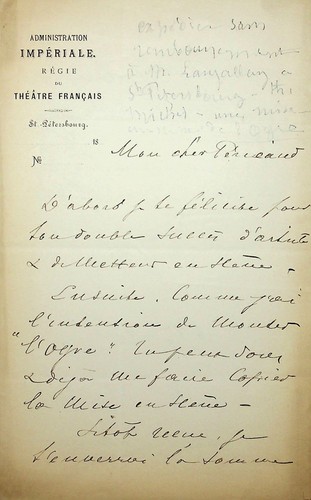 ADMINISTRATION
IMPÉRIALE.
RÉGIE
DU
THÉÂTRE FRANÇAIS
St. Pétersbourg.
18
№
expédier sans
remboursement
à Mr.
St Petersbourg - Th
Michel - une mise
en scène de l'Ogre
Mon cher Péricaud
D'abord je te félicite pour
ton double succès d'artiste
& de Metteur en Scène -
Ensuite. Comme j'ai
l'intention de Monter
"l'Ogre". Tu peux donc
déjà me faire Copier
la Mise en Scène -
Sitôt reçue, je
t'enverrai la somme